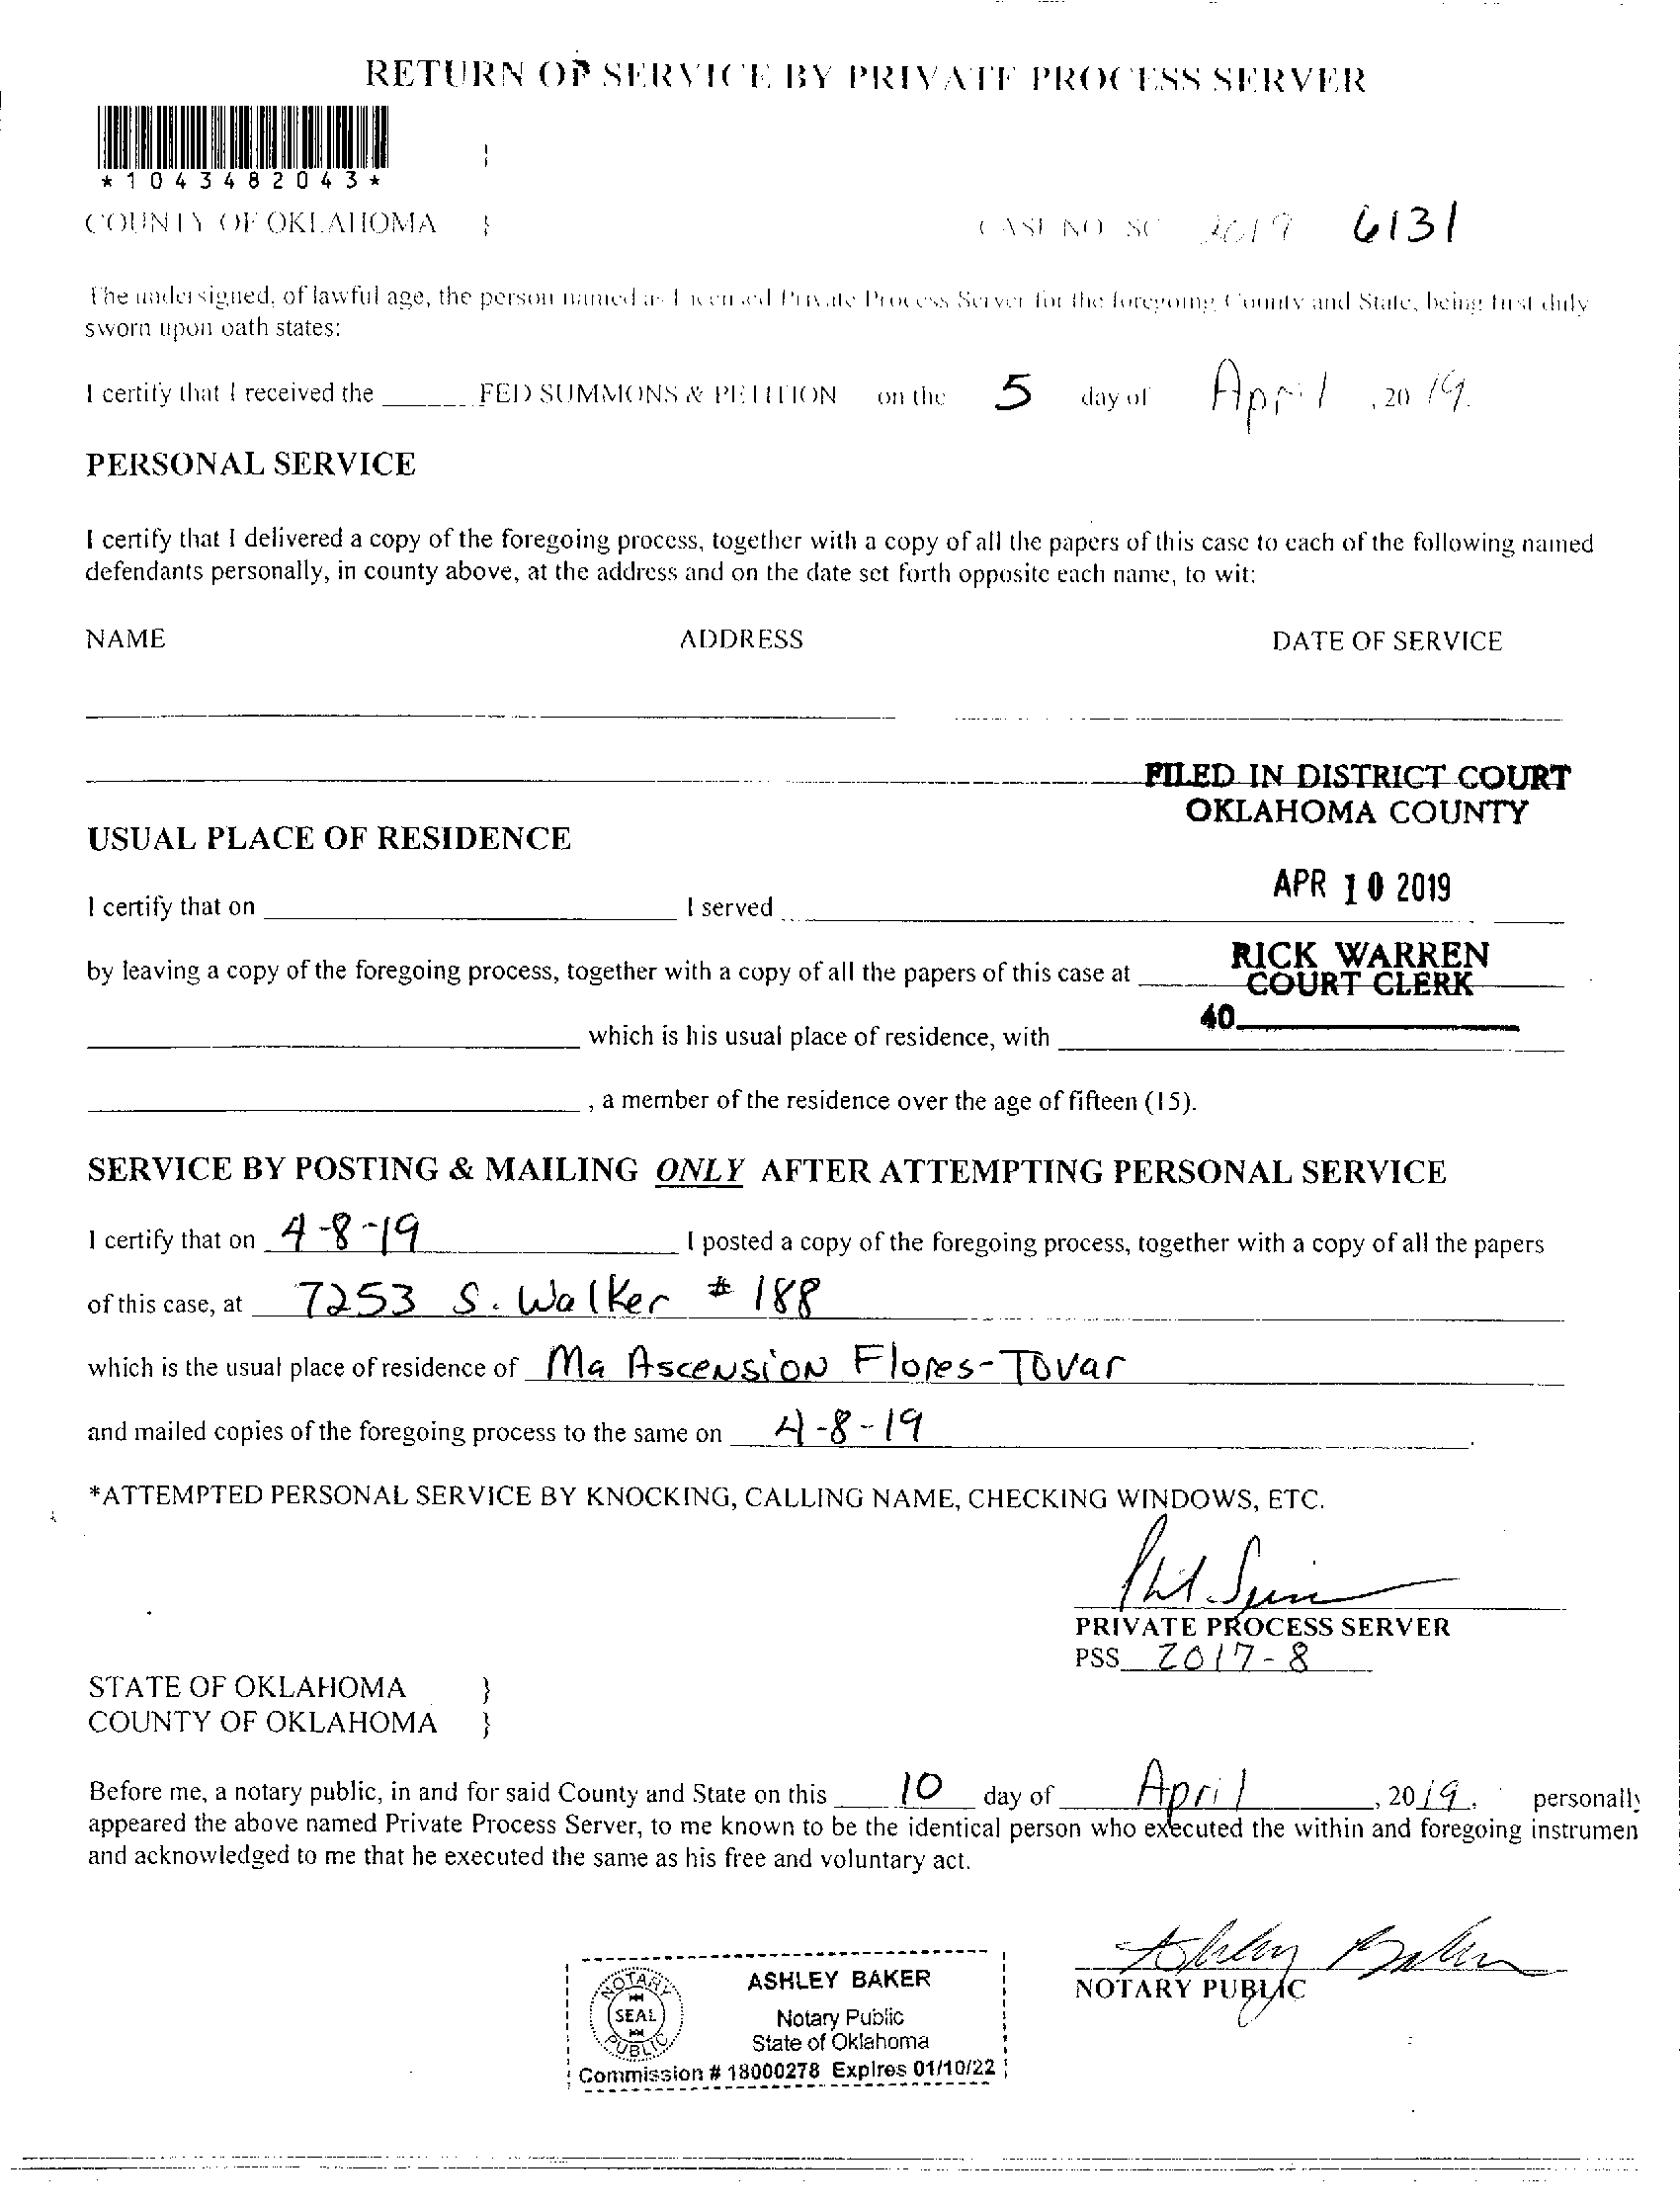 RETURN OF SERVICE BY PRIVATE PROCESS SERVER
*1043482043*
}
COUNTY OF OKLAHOMA } CASE NO SC 2019 6131
The undersigned, of lawful age, the person named as Licensed Private Process Server for the foregoing County and State, being first duly
sworn upon oath states:
I certify that I received the FED SUMMONS & PETITION on the 5 day of April , 20 19.
PERSONAL SERVICE
I certify that I delivered a copy of the foregoing process, together with a copy of all the papers of this case to each of the following named
defendants personally, in county above, at the address and on the date set forth opposite each name, to wit:
NAME ADDRESS DATE OF SERVICE
FILED IN DISTRICT COURT
OKLAHOMA COUNTY
USUAL PLACE OF RESIDENCE
APR 10 2019
I certify that on I served
RICK WARREN
by leaving a copy of the foregoing process, together with a copy of all the papers of this case at
COURT CLERK
40
which is his usual place of residence, with
, a member of the residence over the age of fifteen (15).
SERVICE BY POSTING & MAILING ONLY AFTER ATTEMPTING PERSONAL SERVICE
I certify that on 4-8-19 I posted a copy of the foregoing process, together with a copy of all the papers
of this case, at 7253 S. Walker # 188
which is the usual place of residence of Ma Ascension Flores-Tovar
and mailed copies of the foregoing process to the same on 4-8-19.
*ATTEMPTED PERSONAL SERVICE BY KNOCKING, CALLING NAME, CHECKING WINDOWS, ETC.
PRIVATE PROCESS SERVER
PSS 2017-8
STATE OF OKLAHOMA }
COUNTY OF OKLAHOMA }
Before me, a notary public, in and for said County and State on this 10 day of April , 2019. personally
appeared the above named Private Process Server, to me known to be the identical person who executed the within and foregoing instrumen
and acknowledged to me that he executed the same as his free and voluntary act.
Ashley Baker
NOTARY PUBLIC
NOTARY SEAL PUBLIC
ASHLEY BAKER
Notary Public
State of Oklahoma
Commission # 18000278 Expires 01/10/22